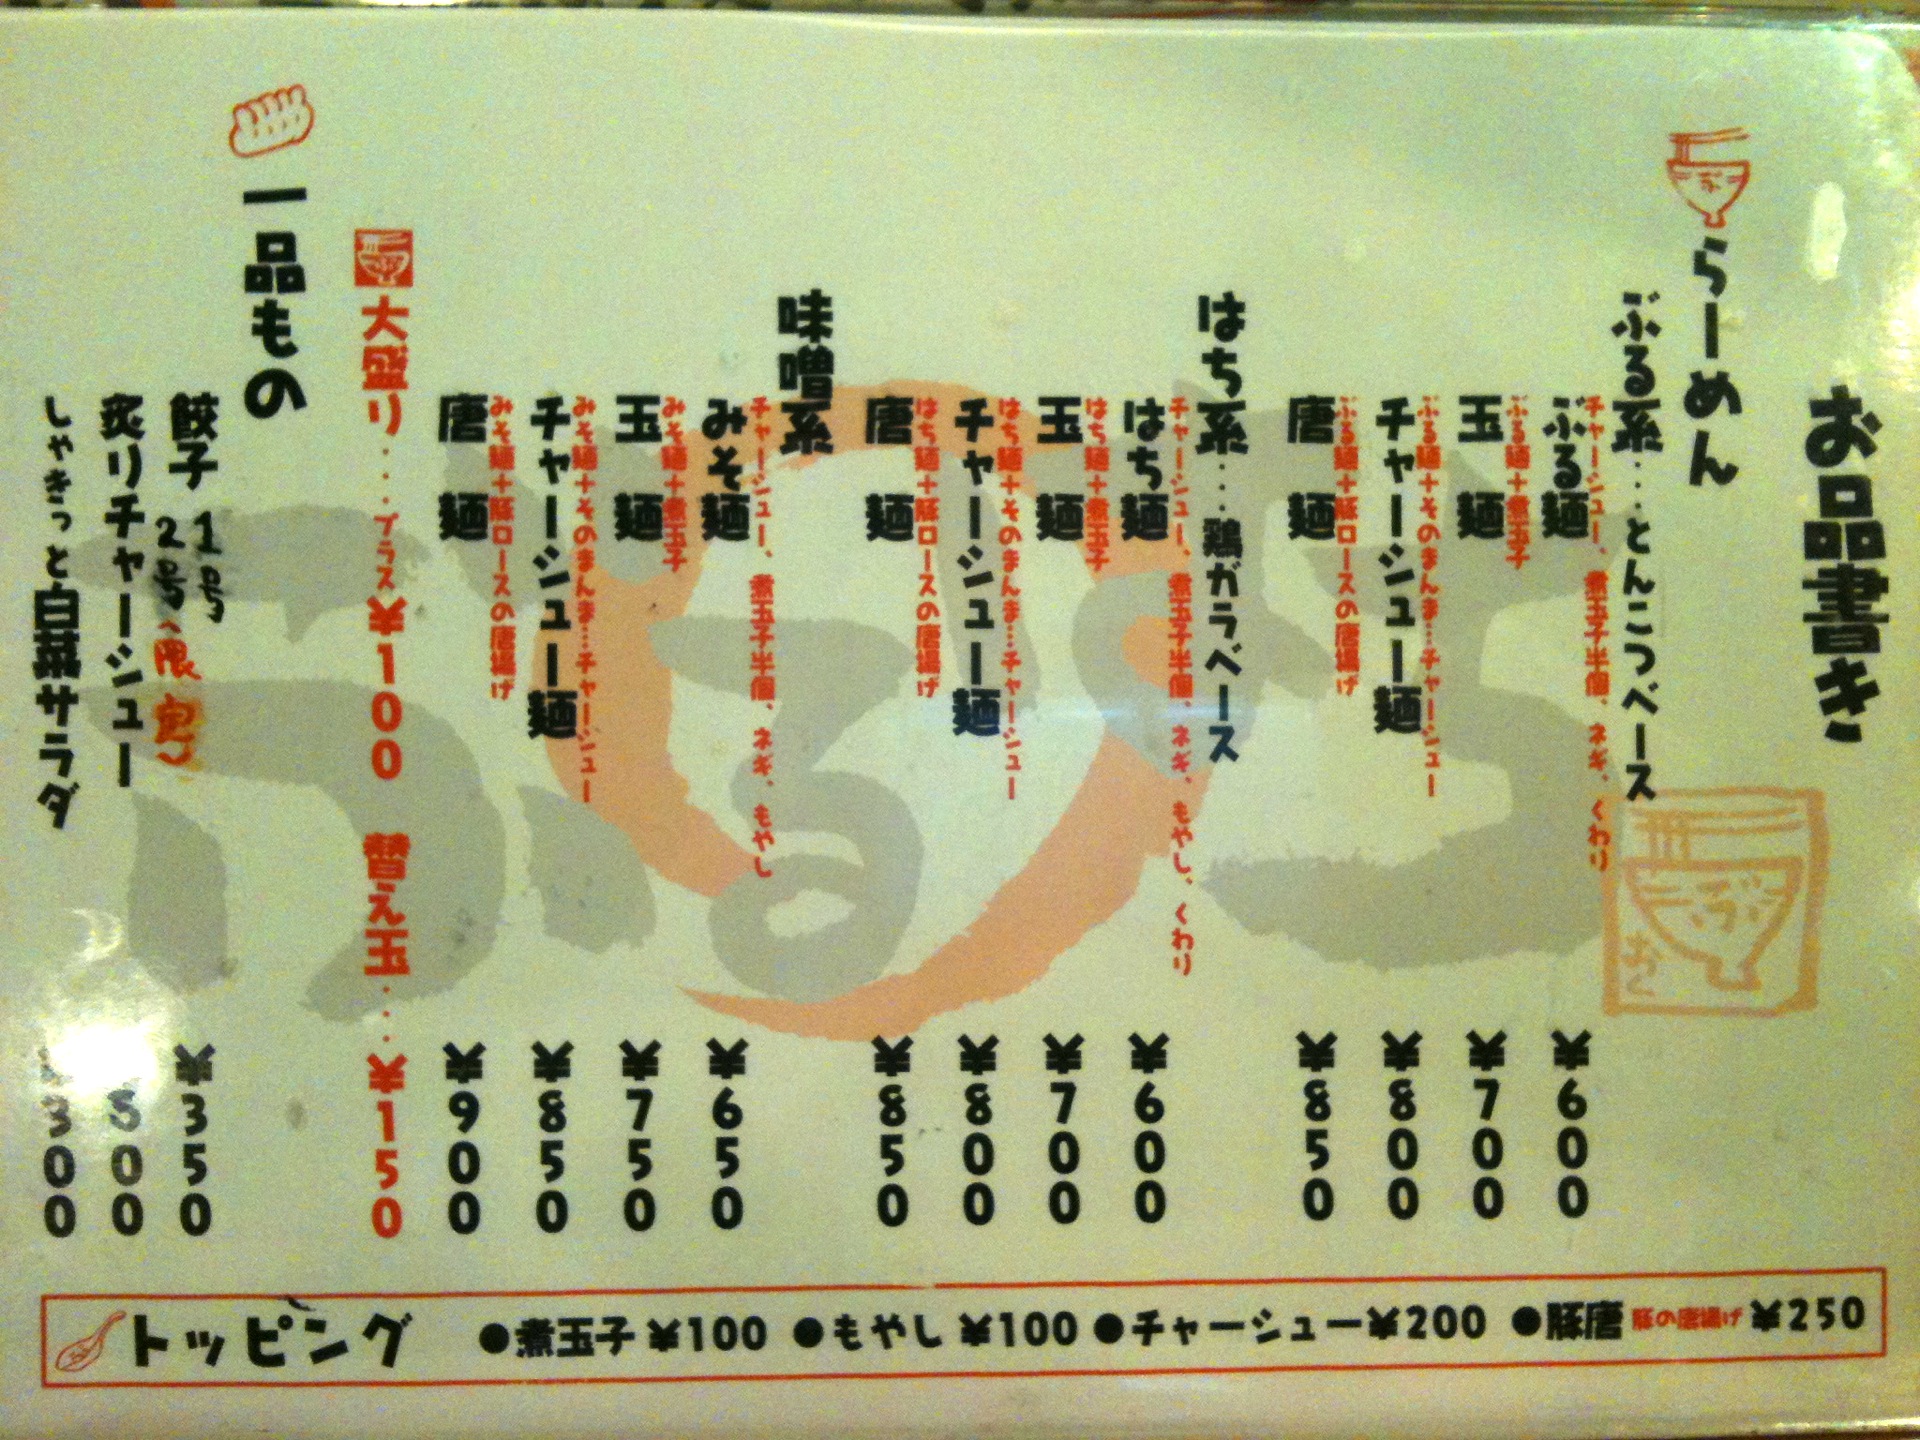 お品書き
らーめん
ぶる系‥‥とんこつベース
チャーシュー、煮玉子半個、ネギ、くわり
ぶる麺 ¥600
ぶる麺+煮玉子
玉麺 ¥700
ぶる麺+そのまんま…チャーシュー
チャーシュー麺 ¥800
ぶる麺+豚ロースの唐揚げ
唐麺 ¥850
はち系‥‥鶏ガラベース
チャーシュー、煮玉子半個、ネギ、もやし、くわり
はち麺 ¥600
はち麺+煮玉子
玉麺 ¥700
はち麺+そのまんま…チャーシュー
チャーシュー麺 ¥800
はち麺+豚ロースの唐揚げ
唐麺 ¥850
味噌系
チャーシュー、煮玉子半個、ネギ、もやし
みそ麺 ¥650
みそ麺+煮玉子
玉麺 ¥750
みそ麺+そのまんま…チャーシュー
チャーシュー麺 ¥850
みそ麺+豚ロースの唐揚げ
唐麺 ¥900
大盛り‥‥プラス¥100 替え玉‥‥¥150
一品もの
餃子 1号 2号、限定 ¥350
炙りチャーシュー
しゃきっと白菜サラダ ¥300
トッピング ●煮玉子¥100 ●もやし¥100 ●チャーシュー¥200 ●豚唐 豚の唐揚げ ¥250
ぶるはち